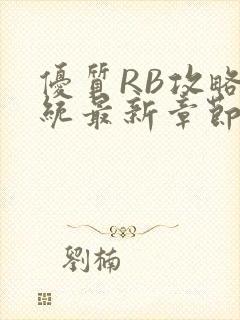 優質RB攻略
統最新章節
劉楠